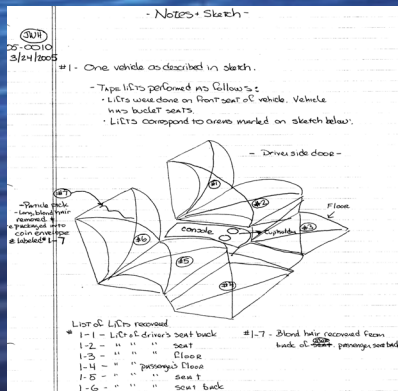 - Notes + Sketch -
JWH
05-0010
3/24/2005
#1 - One vehicle as described in sketch.
- Tape lifts performed as follows:
• Lifts were done on front seat of vehicle. Vehicle
has bucket seats.
• Lifts correspond to areas marked on sketch below.
- Driver side door -
#7
- Particle pick
- Long, blond hair
removed &
packaged into
coin envelope
& labeled # 1-7
#1
#2
Floor
#3
console
cupholder
#6
#5
#4
List of Lifts recovered
# 1-1 - Lift of driver's seat back
1-2 - " " " seat
1-3 - " " " floor
1-4 - " " passenger's floor
1-5 - " " " seat
1-6 - " " " seat back
#1-7 - Blond hair recovered from
back of seat passenger seat back